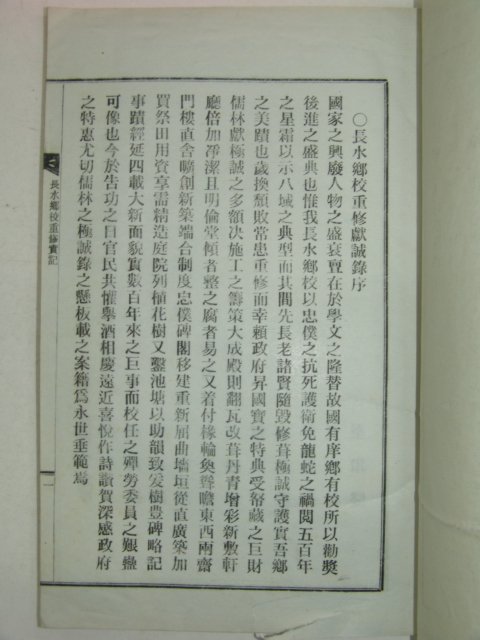 ○長水鄉校重修獻誠錄序
國家之興廢人物之盛衰亶在於學文之隆替故國有庠鄉有校所以勸奬
後進之盛典也惟我長水鄉校以忠僕之抗死護衛免龍蛇之禍閱五百年
之星霜以示八域之典型而其間先長老諸賢隨毁修葺極誠守護實吾鄉
之美蹟也歲換頹敗常患重修而幸賴政府昇國寶之特典受帑藏之巨財
儒林獻極誠之多額决施工之籌策大成殿則翻瓦改葺丹青增彩新敷軒
廳倍加淨潔且明倫堂傾者整之腐者易之又着付椽輪奐聳瞻東西兩齋
門樓直舍曠創新築端合制度忠僕碑閣移建重新屈曲墻垣從直廣築加
買祭田用資享需精造庭院列植花樹又鑿池塘以助韻致爰樹豊碑略記
事蹟經延四載大新面貌實數百年來之巨事而校任之殫勞委員之艱蠱
可像也今於告功之日官民共懽擧酒相慶遠近喜悅作詩讚賀深感政府
之特惠尤切儒林之極誠錄之懸板載之案籍爲永世垂範焉
長水鄉校重修實記
一